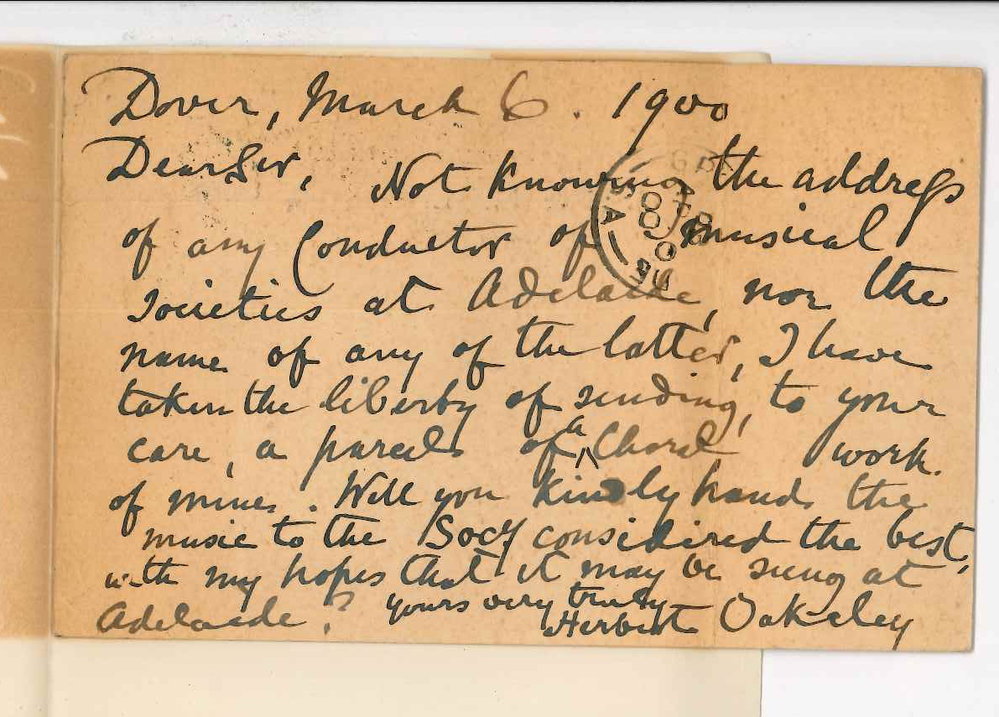 Dover, March 6. 1900
Dear Sir, Not knowing the address
of any Conductor of musical
societies at Adelaide, nor the
name of any of the latter, I have
taken the liberty of sending, to your
care, a parcel of a Choral work
of mine. Will you kindly hand the
music to the Socy considered the best,
with my hopes that it may be sung at
Adelaide? Yours very truly
Herbert Oakeley
S.A.